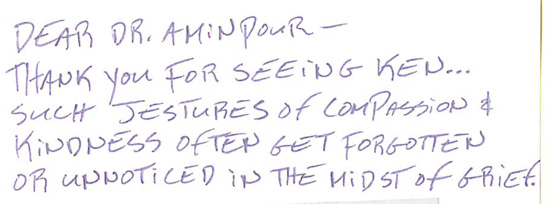 DEAR DR. AMINPOUR —
THANK YOU FOR SEEING KEN...
SUCH JESTURES OF COMPASSION &
KINDNESS OFTEN GET FORGOTTEN
OR UNNOTICED IN THE MIDST OF GRIEF.